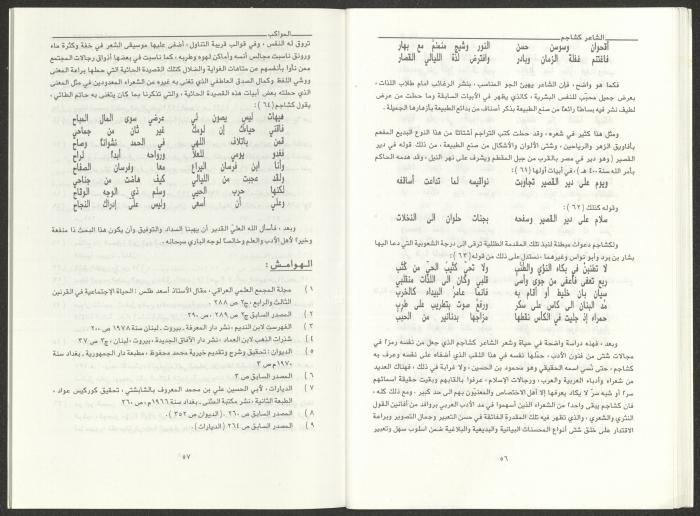 الشاعر كشاجم
أقحوان وسوسن حسن النور وشيح منمنم مع بهار
فاغتنم غفلة الزمان وبادر وافترض لذة الليالي القصار
فكما هو واضح ، فإن الشاعر يهيئ الجو المناسب ، بنشر الرغائب أمام طلاب اللذات ،
بعرض جميل محبّب للنفس البشرية ، كالذي يظهر في الأبيات السابقة وما حملت من عرض
لطيف نشر فيه بساطاً رائعاً من صنع الطبيعة بذكر أصناف من بدائع الطبيعة بأزهارها الجميلة .
ومثل هذا كثير في شعره ، وقد حملت كتب التراجم أشتاتاً من هذا النوع البديع المفعم
بأفاويق الزهر والرياحين ، وشتى الألوان والأشكال من صنع الطبيعة ، من ذلك قوله في دير
القصير ( وهو دير في مصر بالقرب من جبل المقطم ويشرف على نهر النيل ، وقد هدمه الحاكم
بأمر الله سنة ٤٠٠ هـ ) ، في أبيات أولها (٦١) :
ويوم على دير القصير تجاوبت نواقيسه لما تداعت أساقفه
وقوله كذلك (٦٢) :
سلام على دير القصير وسفحه بجنات حلوان الى النخلات
ولكشاجم دعوات مبطنة لنبذ تلك المقدمة الطللية ترقى الى درجة الشعوبية التي دعا اليها
بشار بن برد وأبو نواس وغيرهما ، نستدل على ذلك من قوله (٦٣) :
لا تطنبنْ في بكاء النؤي والطنب ولا تحي كثيب الحي من كثب
ربع تعفى فأعفى من جوى وأسى قلبي وكان الى اللذات منقلبي
سيان بان خليط أو أقام به فإنما عامر البيداء كالخرب
مدّ البنان الى كاس على سكر ورفع صوت بتطريب على طرب
حمراء إذ جليت في الكأس نقطها مزاجها بدنانير من الحبب
وبعد ، فهذه دراسة واضحة في حياة وشعر الشاعر كشاجم الذي جعل من نفسه رمزاً في
مجالات شتى من فنون الأدب ، حمّلها نفسه في هذا اللقب الذي أضفاه على نفسه وعرف به
كشاجم ، حتى نُسي اسمه الحقيقي وهو محمود بن الحسين ، ولا غرابة في ذلك ، فهناك العديد
من شعراء وأدباء العربية والعرب ، ورجالات الإسلام ، عرفوا بالقابهم وبقيت حقيقة اسمائهم
سراً أو شبه سرّ لا يكاد يعرفها إلا أهل الاختصاص والمعنيّون بهم الى حد كبير . ومع ذلك كله ،
فإن كشاجم يبقى واحداً من الشعراء الذين أسهموا في مد الأدب العربي بروافد من أفانين القول
النثري والشعري ، والذي تظهر فيه تلك المقدرة الفائقة في حسن التعبير وجمال التصوير وبراعة
الاقتدار على خلق شتى أنواع المحسنات البيانية والبديعية والبلاغية ضمن اسلوب سهل وتعبير
٥٦
المواكب
تروق له النفس ، وفي قوالب قريبة التناول ، أضفى عليها موسيقى الشعر في خفة وكثرة ماء
ورونق ناسبت مجالس أنسه وأماكن لهوه وطربه ، كما ناسبت في بعضها أذواق رجالات المجتمع
ممن نأوا بأنفسهم عن متاهات الغواية والضلال كتلك القصيدة الحائية التي حملها براعة المعنى
ووشي اللفظ وكمال الصدق العاطفي الذي تغنى به غيره من الشعراء المعدودين في مثل المعنى
الذي حملته بعض أبيات هذه القصيدة الحائية ، والتي تذكرنا بما كان يتغنى به حاتم الطائي ،
يقول كشاجم (٦٤) :
فيهات ليس يصون لي عرضي سوى المال المباح
فالقني حياتك إن لومك غير ثان من جماحي
فمن باتلاف اللهى في الحمد نشوانا وصاح
فغدو يومي للعلا ورواحه أبدا لراح
وأنا ابن فرسان اليراع معا وفرسان الصفاح
ولقد عجبت من الليالي كيف هاضت من جناحي
لكنها حرب الحيي وسلم ذي الوجه الوقاح
وعلي أن أسعى وليس علي إدراك النجاح
وبعد ، فأسأل الله العليّ القدير أن يهبنا السداد والتوفيق وأن يكون هذا البحث ذا منفعة
وخير لأهل الأدب والعلم وخالصاً لوجه الباري سبحانه .
الهوامش :
١ ) مجلة المجمع العلمي العراقي ، مقال الأستاذ أسعد طلس : الحياة الإجتماعية في القرنين
الثالث والرابع ، ج٢ ص ٢٨٨ .
٢ ) المصدر السابق ج٢ ص ٢٨٩ ، ص ٢٩٠ .
٣ ) الفهرست لابن النديم ، نشر دار المعرفة ـ بيروت ـ لبنان سنة ١٩٧٨ ص ٢٠٠ .
٤ ) شذرات الذهب لابن العماد ، نشر دار الآفاق الجديدة ، بيروت ، لبنان ، ج٣ ص ٣٧ .
٥ ) الديوان : تحقيق وشرح وتقديم خيرية محمد محفوظ ، مطبعة دار الجمهورية ـ بغداد سنة
١٩٧٠م ص ٣ .
٦ ) المصدر السابق ص ٣ .
٧ ) الديارات ، لأبي الحسين علي بن محمد المعروف بالشابشتي ، تحقيق كوركيس عواد ،
الطبعة الثانية ، نشر مكتبة المثنى ـ بغداد سنة ١٩٦٦م ، ص ٢٦٠ .
٨ ) المصدر السابق ص ٢٦٠ . ( الديوان ص ٣٥٢ ) .
٩ ) المصدر السابق ص ٢٦٤ ( الديارات ) .
٥٧